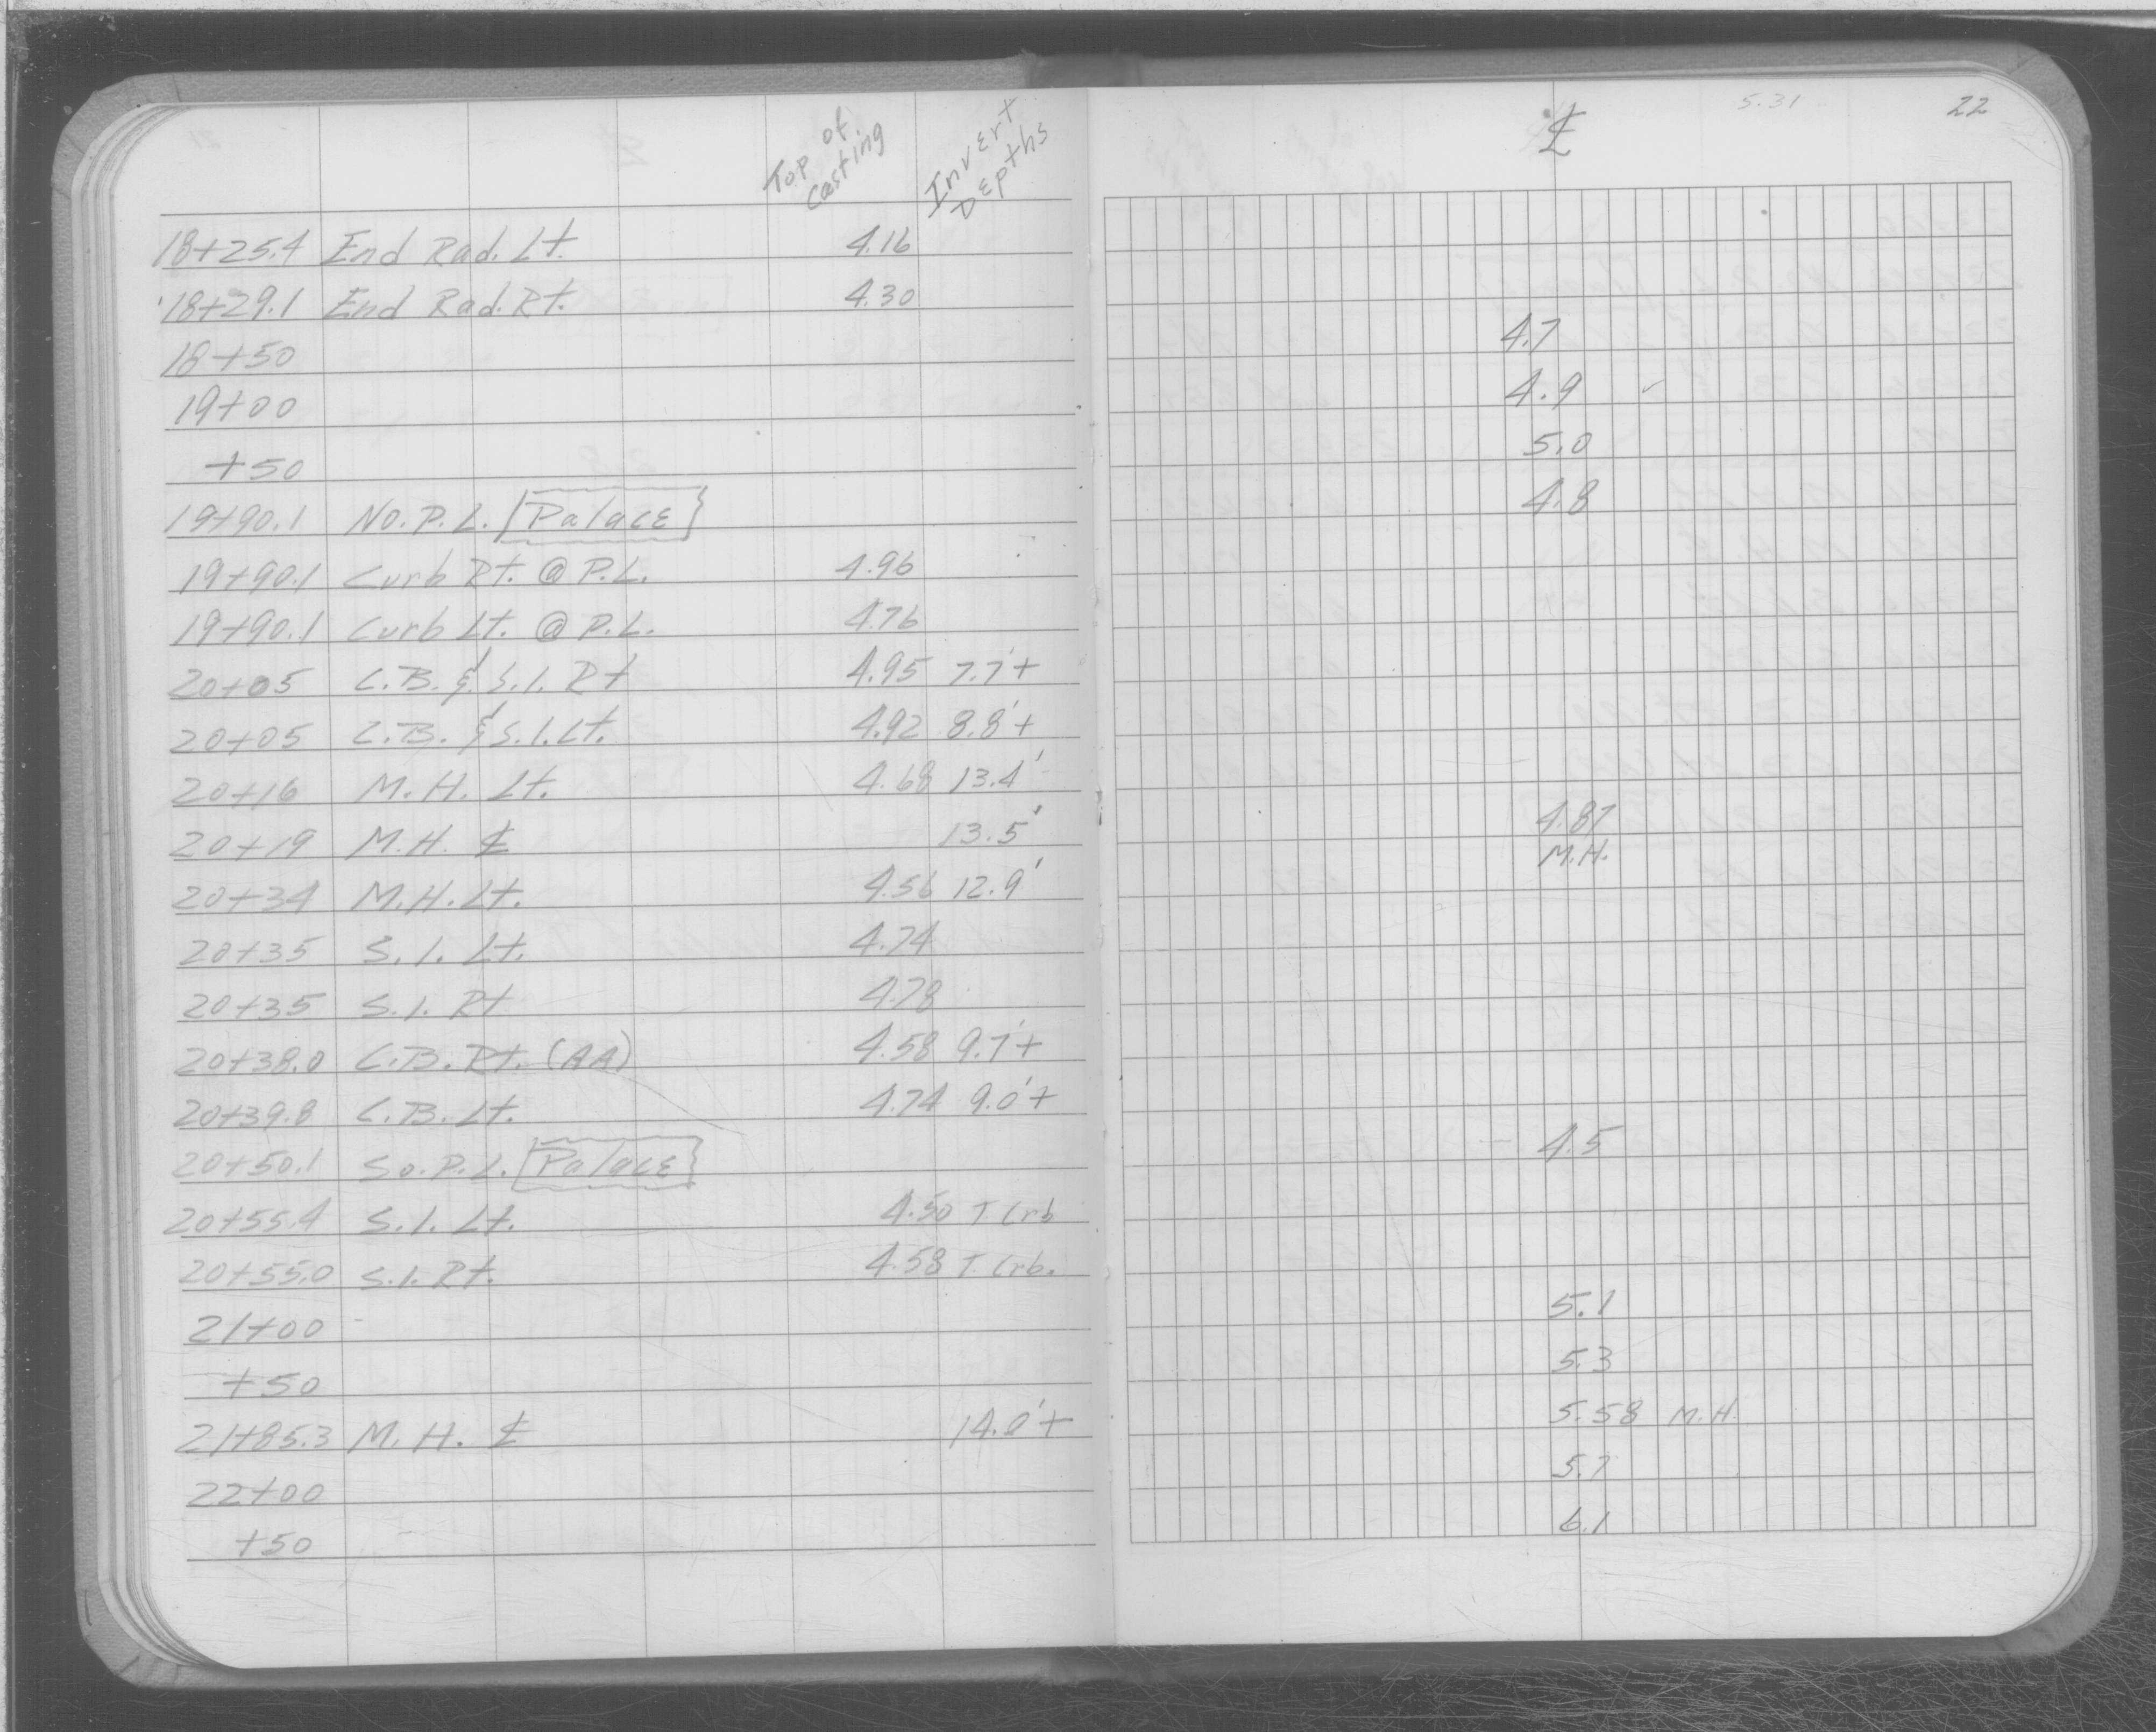 Top of Casting Invert Depths ℄ 5.31 22
18+25.4 End Rad. Lt. 4.16
18+29.1 End Rad. Rt. 4.30
18+50 4.7
19+00 4.9 ✓
+50 5.0
19+90.1 No. P.L. [Palace] 4.8
19+90.1 Curb Rt. @ P.L. 4.96
19+90.1 Curb Lt. @ P.L. 4.76
20+05 C.B. & S.I. Rt 4.95 7.7'+
20+05 C.B. & S.I. Lt. 4.92 8.8'+
20+16 M.H. Lt. 4.68 13.4'
20+19 M.H. ℄ 13.5' 4.87 M.H.
20+34 M.H. Lt. 4.56 12.9'
20+35 S.I. Lt. 4.74
20+35 S.I. Rt 4.78
20+38.0 C.B. Rt. (AA) 4.58 9.7'+
20+39.8 C.B. Lt. 4.74 9.0'+
20+50.1 So. P.L. [Palace] 4.5
20+55.4 S.I. Lt. 4.50 T. Crb
20+55.0 S.I. Rt. 4.58 T. Crb.
21+00 5.1
+50 5.3
21+85.3 M.H. ℄ 14.0'+ 5.58 M.H.
22+00 5.7
+50 6.1